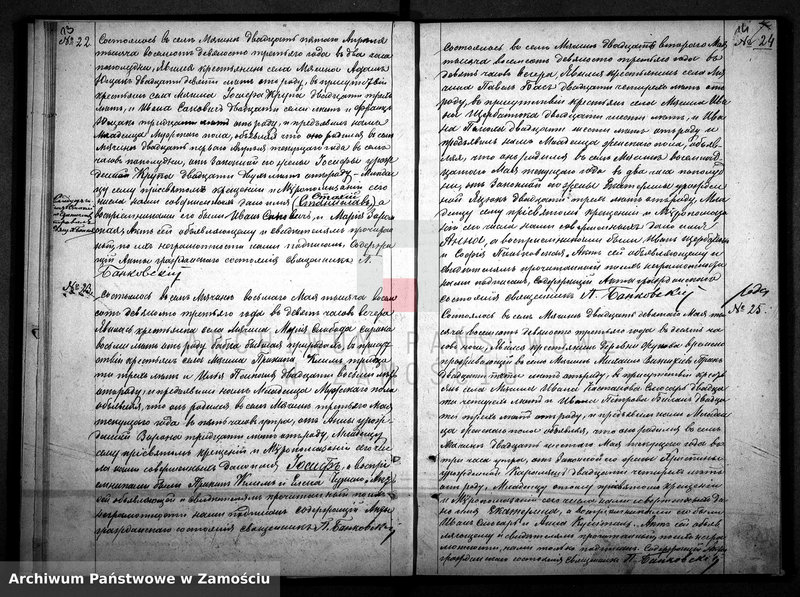 13
№ 22
Состоялось в селе Мячин двадцать пятаго Апреля
тысяча восемьсот девяносто третьяго года в два часа
пополудни. Явился крестьянин села Мячина Адам
двадцати девяти лет от роду, в присутствии
крестьян села Мячина Иосифа Крупы двадцати трех
лет, и Ивана двадцати семи лет и Франца
лет от роду, и предъявил нам
Младенца Мужскаго пола, объявляя что он родился в селе
Мячин двадцать перваго Апреля текущаго года в семь
часов пополудни, от законной его жены Иосифы урож-
денной Крупов двадцати лет от роду. Младен-
цу сему при святом крещении и Миропомазании его
числа нами совершенном дано имя Станислав, а
восприемниками его были Иван и Мария
Акт сей объявляющему и свидетелям прочитан-
ный, по их неграмотности нами подписан. Содержа-
щий Акты гражданского состояния священник П.
Банковский
№ 23.
Состоялось в селе Мячин восьмого Мая тысяча восем-
сот девяносто третьяго года в девять часов вечера.
Явилась крестьянка села Мячина Мария Слобода сорока
восьми лет от роду бабка бывшая при родах, в присут-
ствии крестьян села Мячина Прокопа Килима тридца-
ти трех лет и Ильи двадцати восьми лет
от роду, и предъявила нам Младенца Мужскаго пола
объявляя, что он родился в селе Мячин третьяго Мая
текущаго года в пять часов утра, от Анны урож-
денной Ворона тридцати лет от роду. Младенцу
сему при святом крещении и Миропомазании сего чис-
ла нами совершенном дано имя Иосиф, а воспри-
емниками были Прокоп Килим и Елена Акт
сей объявляющей и свидетелям прочитанный по их
неграмотности нами подписан. Содержащий Акты
гражданского состояния священник П. Банковский
14
№ 24
Состоялось в селе Мячин двадцать втораго Мая
тысяча восемьсот девяносто третьяго года в
девять часов вечера. Явился крестьянин села Мя-
чина Павел Бас двадцати четырех лет от
роду, в присутствии крестьян села Мячина Ива-
на Щербатюка двадцати шести лет и Ива-
на двадцати шести лет от роду и
предъявил нам Младенца женскаго пола, объяв-
ляя, что он родился в селе Мячин восемнад-
цатаго Мая текущаго года в два часа пополу-
дни, от законной его жены Екатерины урожден-
ной двадцати трех лет от роду. Мла-
денцу сему при святом крещении и Миропомаза-
нии сего числа нами совершенном дано имя
Анна, а восприемниками были Иван Щербатюк
и София Акт сей объявляющему и
свидетелям прочитанный по их неграмотности
нами подписан. Содержащий Акты гражданского
состояния священник П. Банковский
№ 25.
Состоялось в селе Мячин двадцать девятаго Мая ты-
сяча восемьсот девяносто третьяго года в десять ча-
сов ночи. Явился крестьянин временно
проживающий в селе Мячин Михаил
двадцати пяти лет от роду, в присутствии кресть-
ян села Мячина Ивана Слюсаря двадца-
ти четырех лет и Ивана Петрова двадца-
ти трех лет от роду, и предъявил нам Младен-
ца женскаго пола объявляя, что он родился в селе
Мячин двадцать шестаго Мая текущаго года в
три часа утра, от законной его жены Христины
урожденной двадцати четырех лет
от роду. Младенцу сему при святом крещении
и Миропомазании сего числа нами совершенном да-
но имя Екатерина, а восприемниками его были
Иван Слюсарь и Анна Акт сей объяв-
ляющему и свидетелям прочитанный, по их негра-
мотности, нами только подписан. Содержащий Акты
гражданского состояния священник П. Банковский
ARCHIWUM PAŃSTWOWE
W ZAMOŚCIU
Archiwum Państwowe w Zamościu